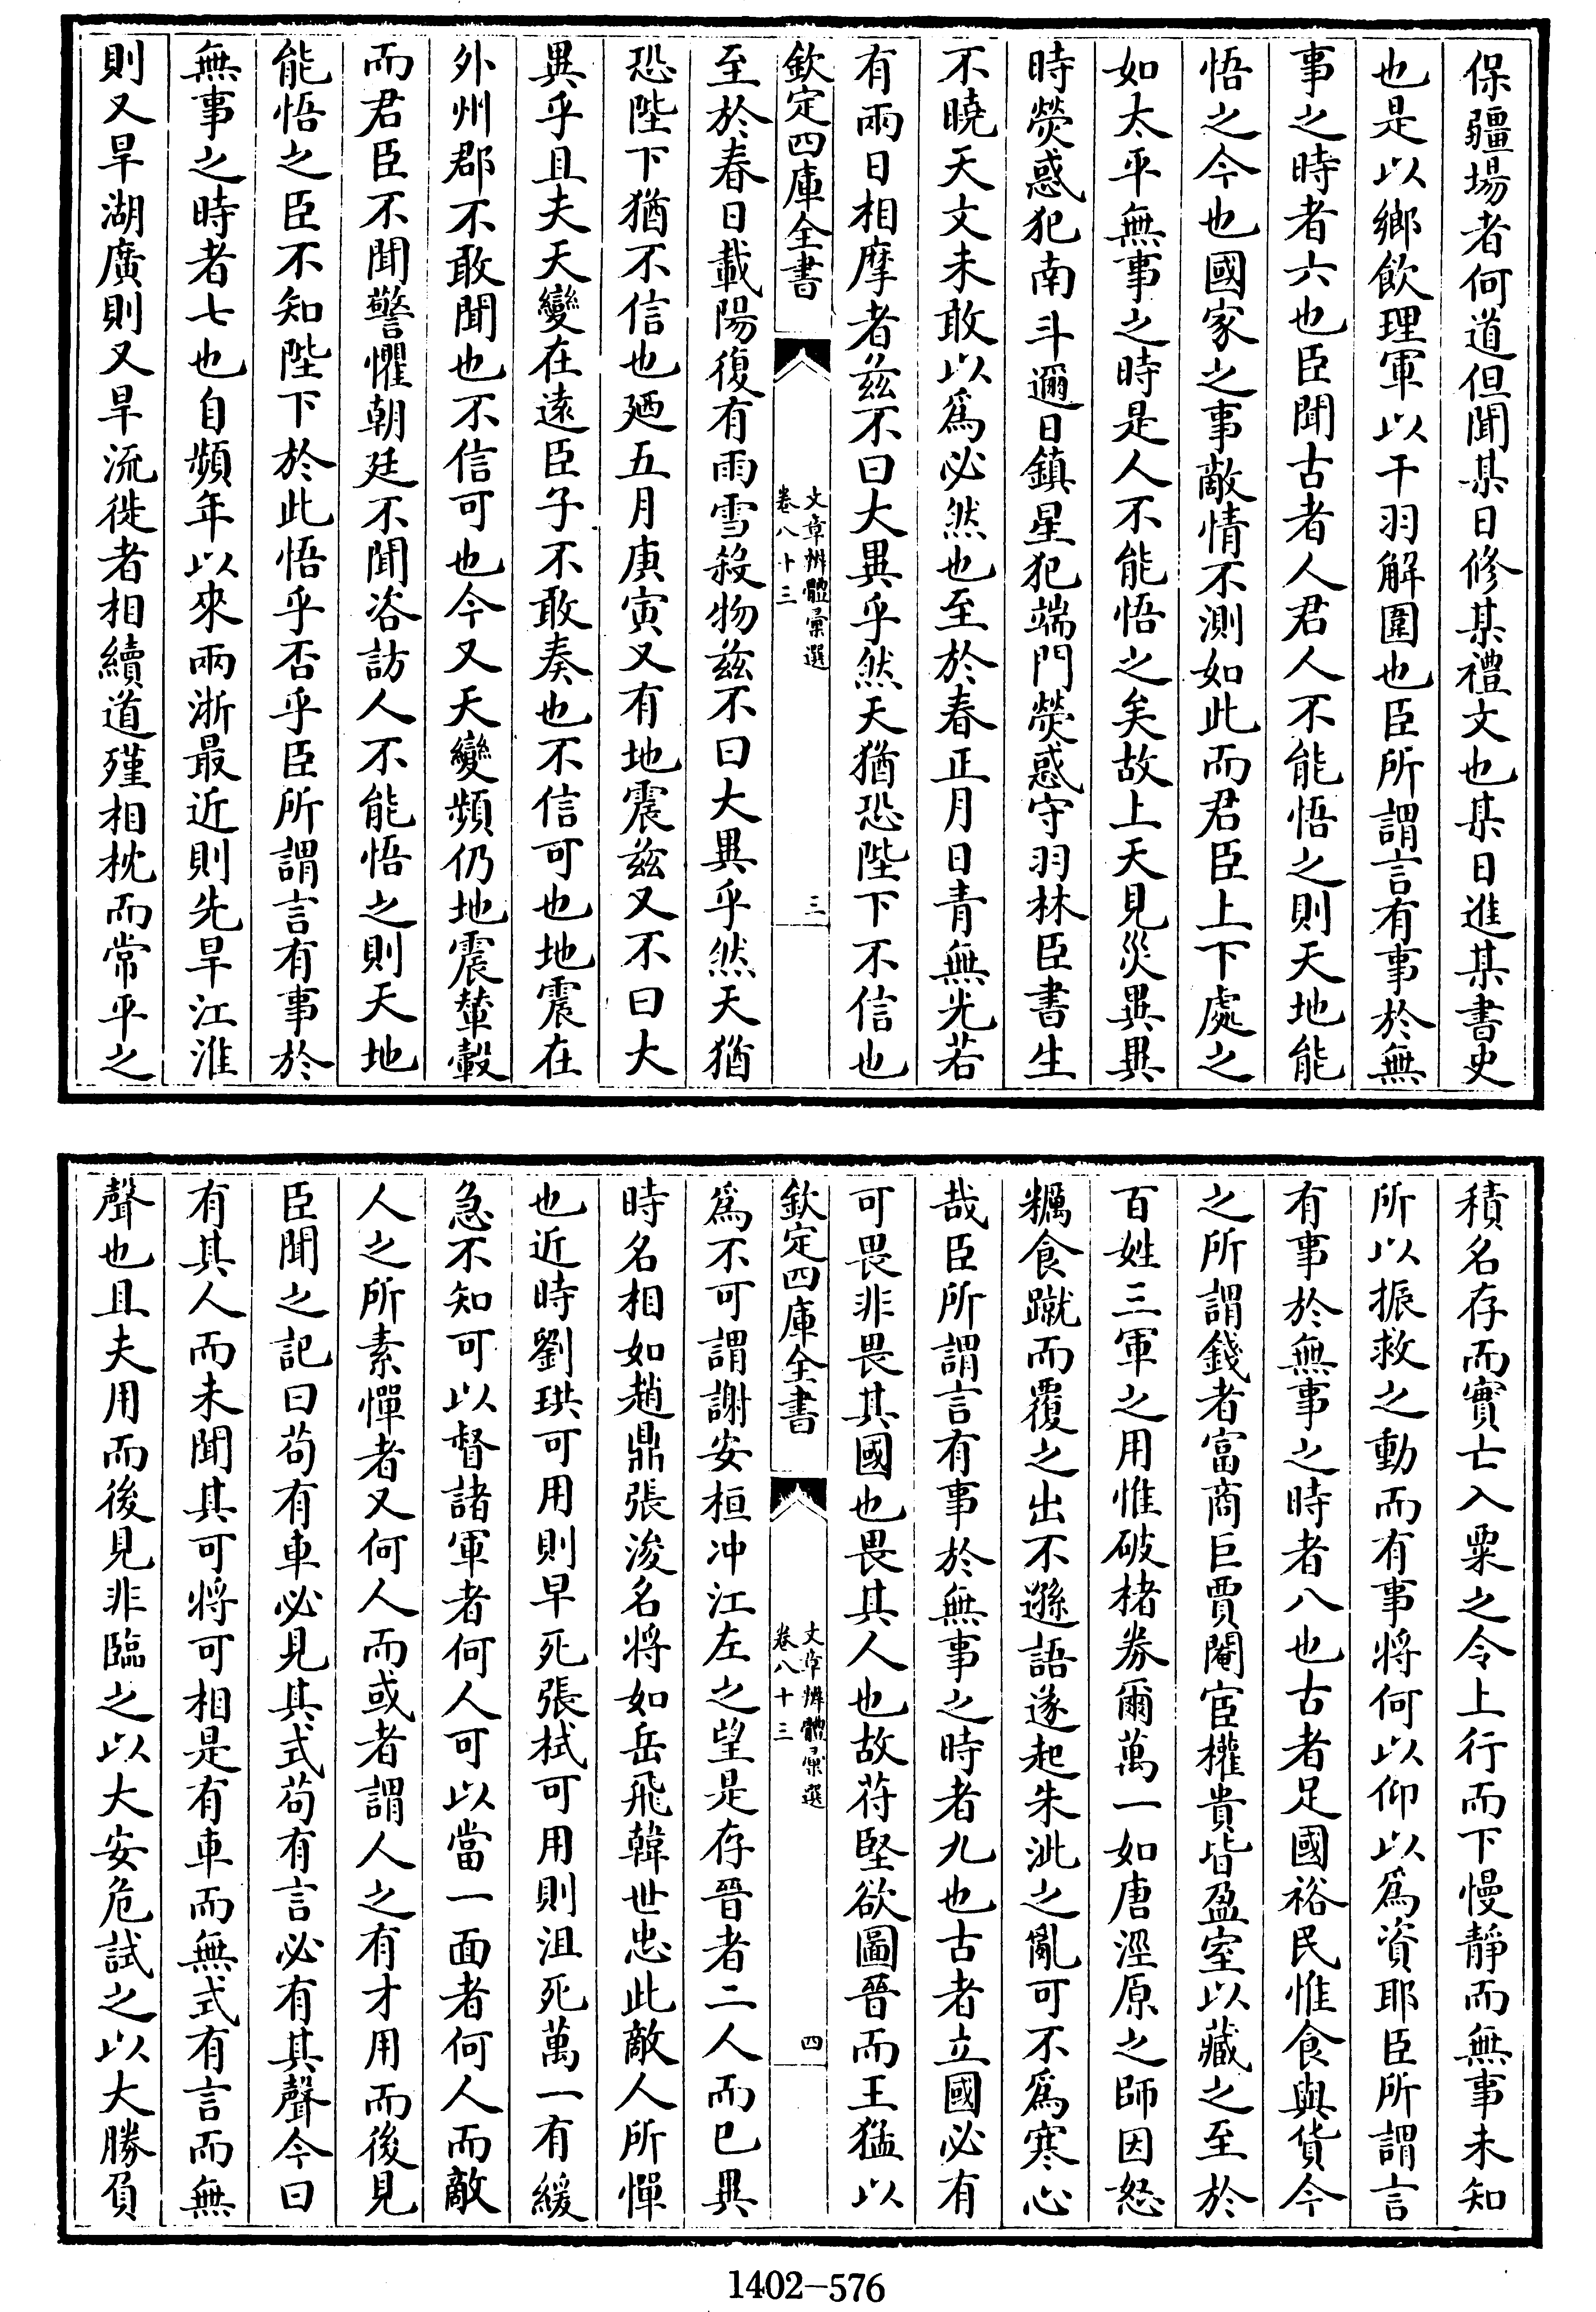 保疆場者何道但聞某日修某禮文也某日進某書史
也是以鄉飲理軍以干羽解圍也臣所謂言有事於無
事之時者六也臣聞古者人君人不能悟之則天地能
悟之今也國家之事敵情不測如此而君臣上下處之
如太平無事之時是人不能悟之矣故上天見災異異
時熒惑犯南斗邇日鎮星犯端門熒惑守羽林臣書生
不曉天文未敢以為必然也至於春正月日青無光若
有兩日相摩者兹不曰大異乎然天猶恐陛下不信也
欽定四庫全書
文章辨體彙選
卷八十三
三
至於春日載陽復有雨雪殺物兹不曰大異乎然天猶
恐陛下猶不信也廼五月庚寅又有地震兹又不曰大
異乎且夫天變在遠臣子不敢奏也不信可也地震在
外州郡不敢聞也不信可也今又天變頻仍地震輦轂
而君臣不聞警懼朝廷不聞咨訪人不能悟之則天地
能悟之臣不知陛下於此悟乎否乎臣所謂言有事於
無事之時者七也自頻年以來兩浙最近則先旱江淮
則又旱湖廣則又旱流徙者相續道殣相枕而常平之
積名存而實亡入粟之令上行而下慢靜而無事未知
所以振救之動而有事將何以仰以為資耶臣所謂言
有事於無事之時者八也古者足國裕民惟食與貨今
之所謂錢者富商巨賈閹宦權貴皆盈室以藏之至於
百姓三軍之用惟破楮券爾萬一如唐涇原之師因怒
糲食蹴而覆之出不遜語遂起朱泚之亂可不為寒心
哉臣所謂言有事於無事之時者九也古者立國必有
可畏非畏其國也畏其人也故苻堅欲圖晉而王猛以
欽定四庫全書
文章辨體彙選
卷八十三
四
為不可謂謝安桓沖江左之望是存晉者二人而已異
時名相如趙鼎張浚名將如岳飛韓世忠此敵人所憚
也近時劉珙可用則早死張栻可用則沮死萬一有緩
急不知可以督諸軍者何人可以當一面者何人而敵
人之所素憚者又何人而或者謂人之有才用而後見
臣聞之記曰苟有車必見其式苟有言必有其聲今曰
有其人而未聞其可將可相是有車而無式有言而無
聲也且夫用而後見非臨之以大安危試之以大勝負
1402-576